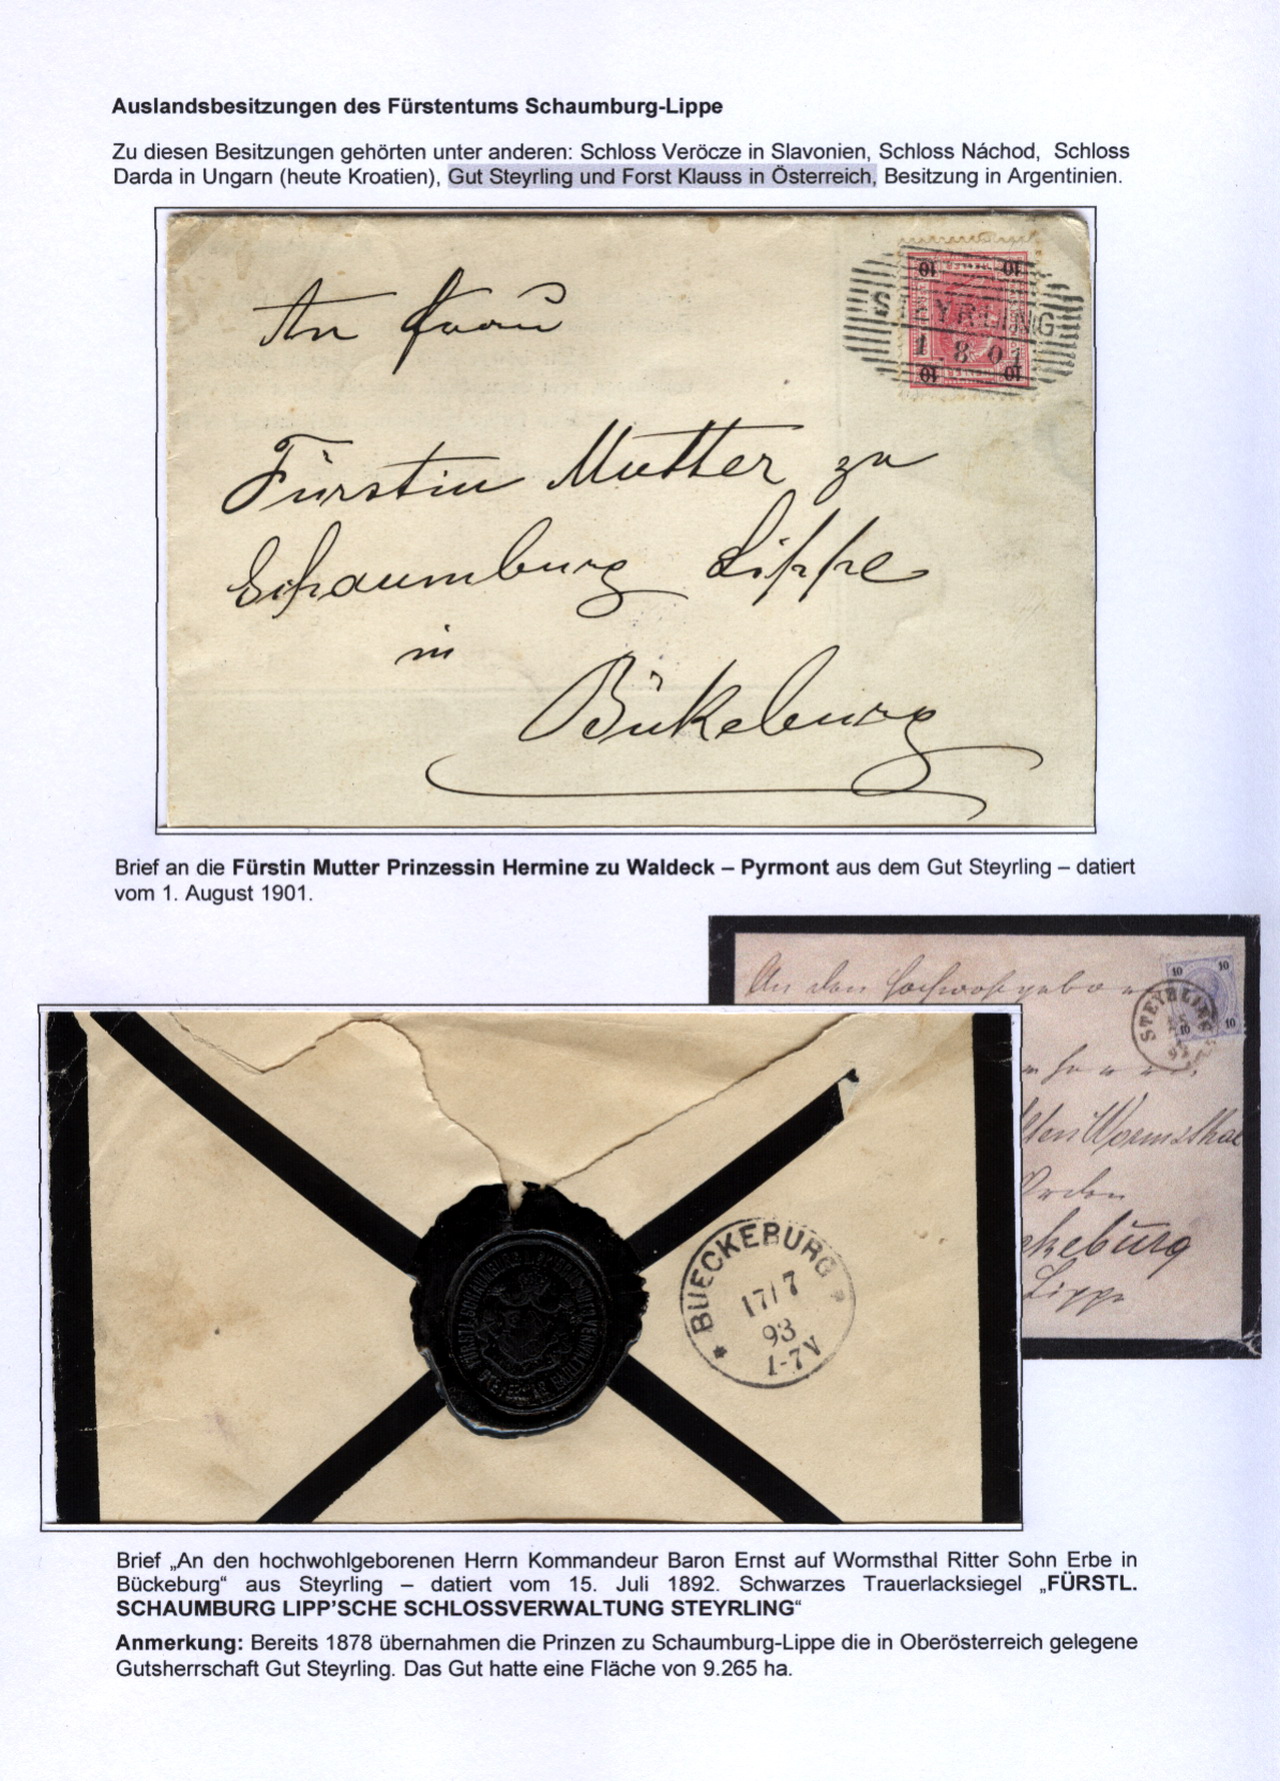 Auslandsbesitzungen des Fürstentums Schaumburg-Lippe
Zu diesen Besitzungen gehörten unter anderen: Schloss Veröcze in Slavonien, Schloss Náchod, Schloss
Darda in Ungarn (heute Kroatien), Gut Steyrling und Forst Klauss in Österreich, Besitzung in Argentinien.
10 10
STEYRLING
1 8 01
10 10
An Frau
Fürstin Mutter zu
Schaumburg Lippe
in
Bükeburg
Brief an die Fürstin Mutter Prinzessin Hermine zu Waldeck – Pyrmont aus dem Gut Steyrling – datiert
vom 1. August 1901.
An den hochwohlgebore
10 10
STEYRLING
10 10
Wormsthal
Orden
ckeburg
Lippe
BUECKEBURG
17/7
93
1-7V
FÜRSTL. SCHAUMBURG LIPP
Brief „An den hochwohlgeborenen Herrn Kommandeur Baron Ernst auf Wormsthal Ritter Sohn Erbe in
Bückeburg“ aus Steyrling – datiert vom 15. Juli 1892. Schwarzes Trauerlacksiegel „FÜRSTL.
SCHAUMBURG LIPP’SCHE SCHLOSSVERWALTUNG STEYRLING“
Anmerkung: Bereits 1878 übernahmen die Prinzen zu Schaumburg-Lippe die in Oberösterreich gelegene
Gutsherrschaft Gut Steyrling. Das Gut hatte eine Fläche von 9.265 ha.